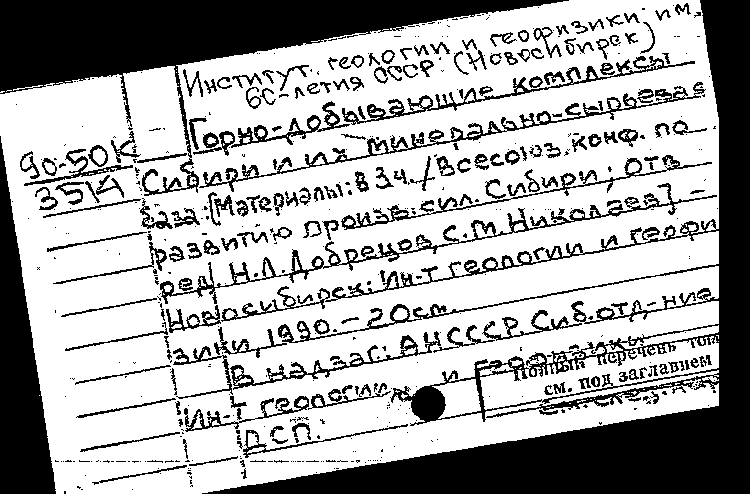 Институт геологии и геофизики им.
60-летия СССР (Новосибирск)
Горно-добывающие комплексы
90-50К
Сибири и их минерально-сырьевая
3514
база: [Материалы: В 3 ч. / Всесоюз. конф. по
развитию произв. сил. Сибири; Отв.
ред. Н.Л. Добрецов, С.М. Николаев]. -
Новосибирск: Ин-т геологии и геофи
зики, 1990. - 20см.
В надзаг: АН СССР. Сиб. отд-ние
Ин-т геологии и геофизики
Полный перечень том
см. под заглавием
ДСП.